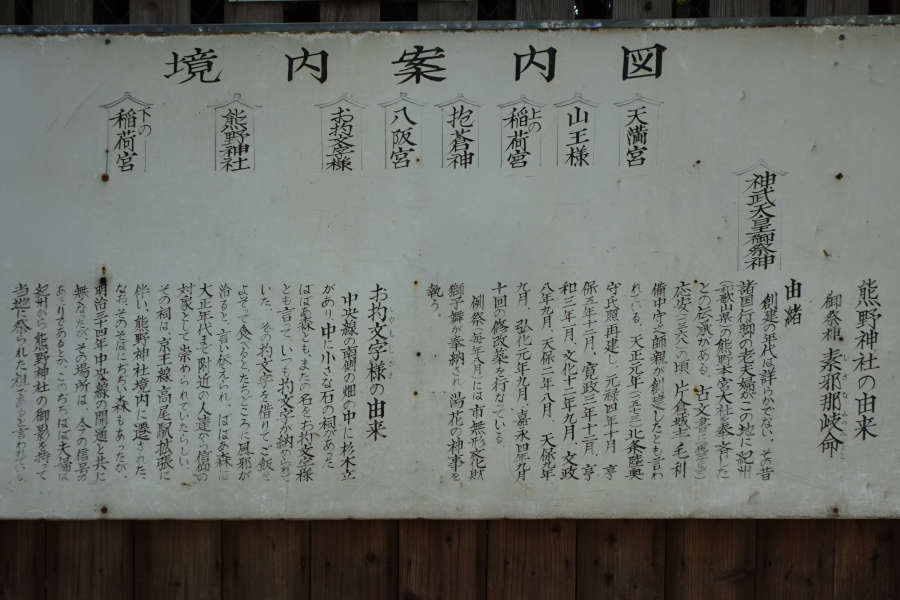 境内案内図
天満宮
山王様
上の
稲荷宮
抱蒼神
八阪宮
お杓文字様
熊野神社
下の
稲荷宮
神武天皇御祭神
熊野神社の由来
御祭神 素邪那岐命
由緒
創建の年代は詳らかでない。その昔
諸国行脚の老夫婦がこの地に紀州
和歌山県の熊野本宮大社を奉斉した
との伝承がある。古文書に
応安の頃、片倉城主毛利
備中守師親が創建したとも言わ
れている。天正元年(一五七三)北条陸奥
守氏照再建し、元禄四年十月、亨
保五年十二月、寛政三年十二月、亨
和三年二月、文化十二年九月、文政
八年九月、天保二年八月、天保九年
九月、弘化元年九月、嘉永四年九月
十回の修改築を行なっている。
例祭(毎年八月)には市無形文化財
獅子舞が奉納され、湯花の神事を
執う。
お杓文字様の由来
中央線の南側の畑の中に杉木立
があり、中に小さな石の祠があった。
ばばあ森とも、またの名をお杓文字様
とも言って、いつも杓文字が納められて
いた。その杓文字を借りてご飯を
よそって食べるとたちどころに風邪が
治ると、言い伝えられ、ばばあ森は
大正年代まで附近の人達から信仰の
対象として崇められていたらしい。
その祠は、京王線、高尾駅拡張に
伴い、熊野神社境内に遷された。
なお、そのそばにぢぢい森もあったが、
明治三四年中央線の開通と共に
無くなった。その場所は、今の信号所
あたりであるとか、このぢぢばば夫婦は
紀州から熊野神社の御影を持って
当地に祭られた祖であると言われている